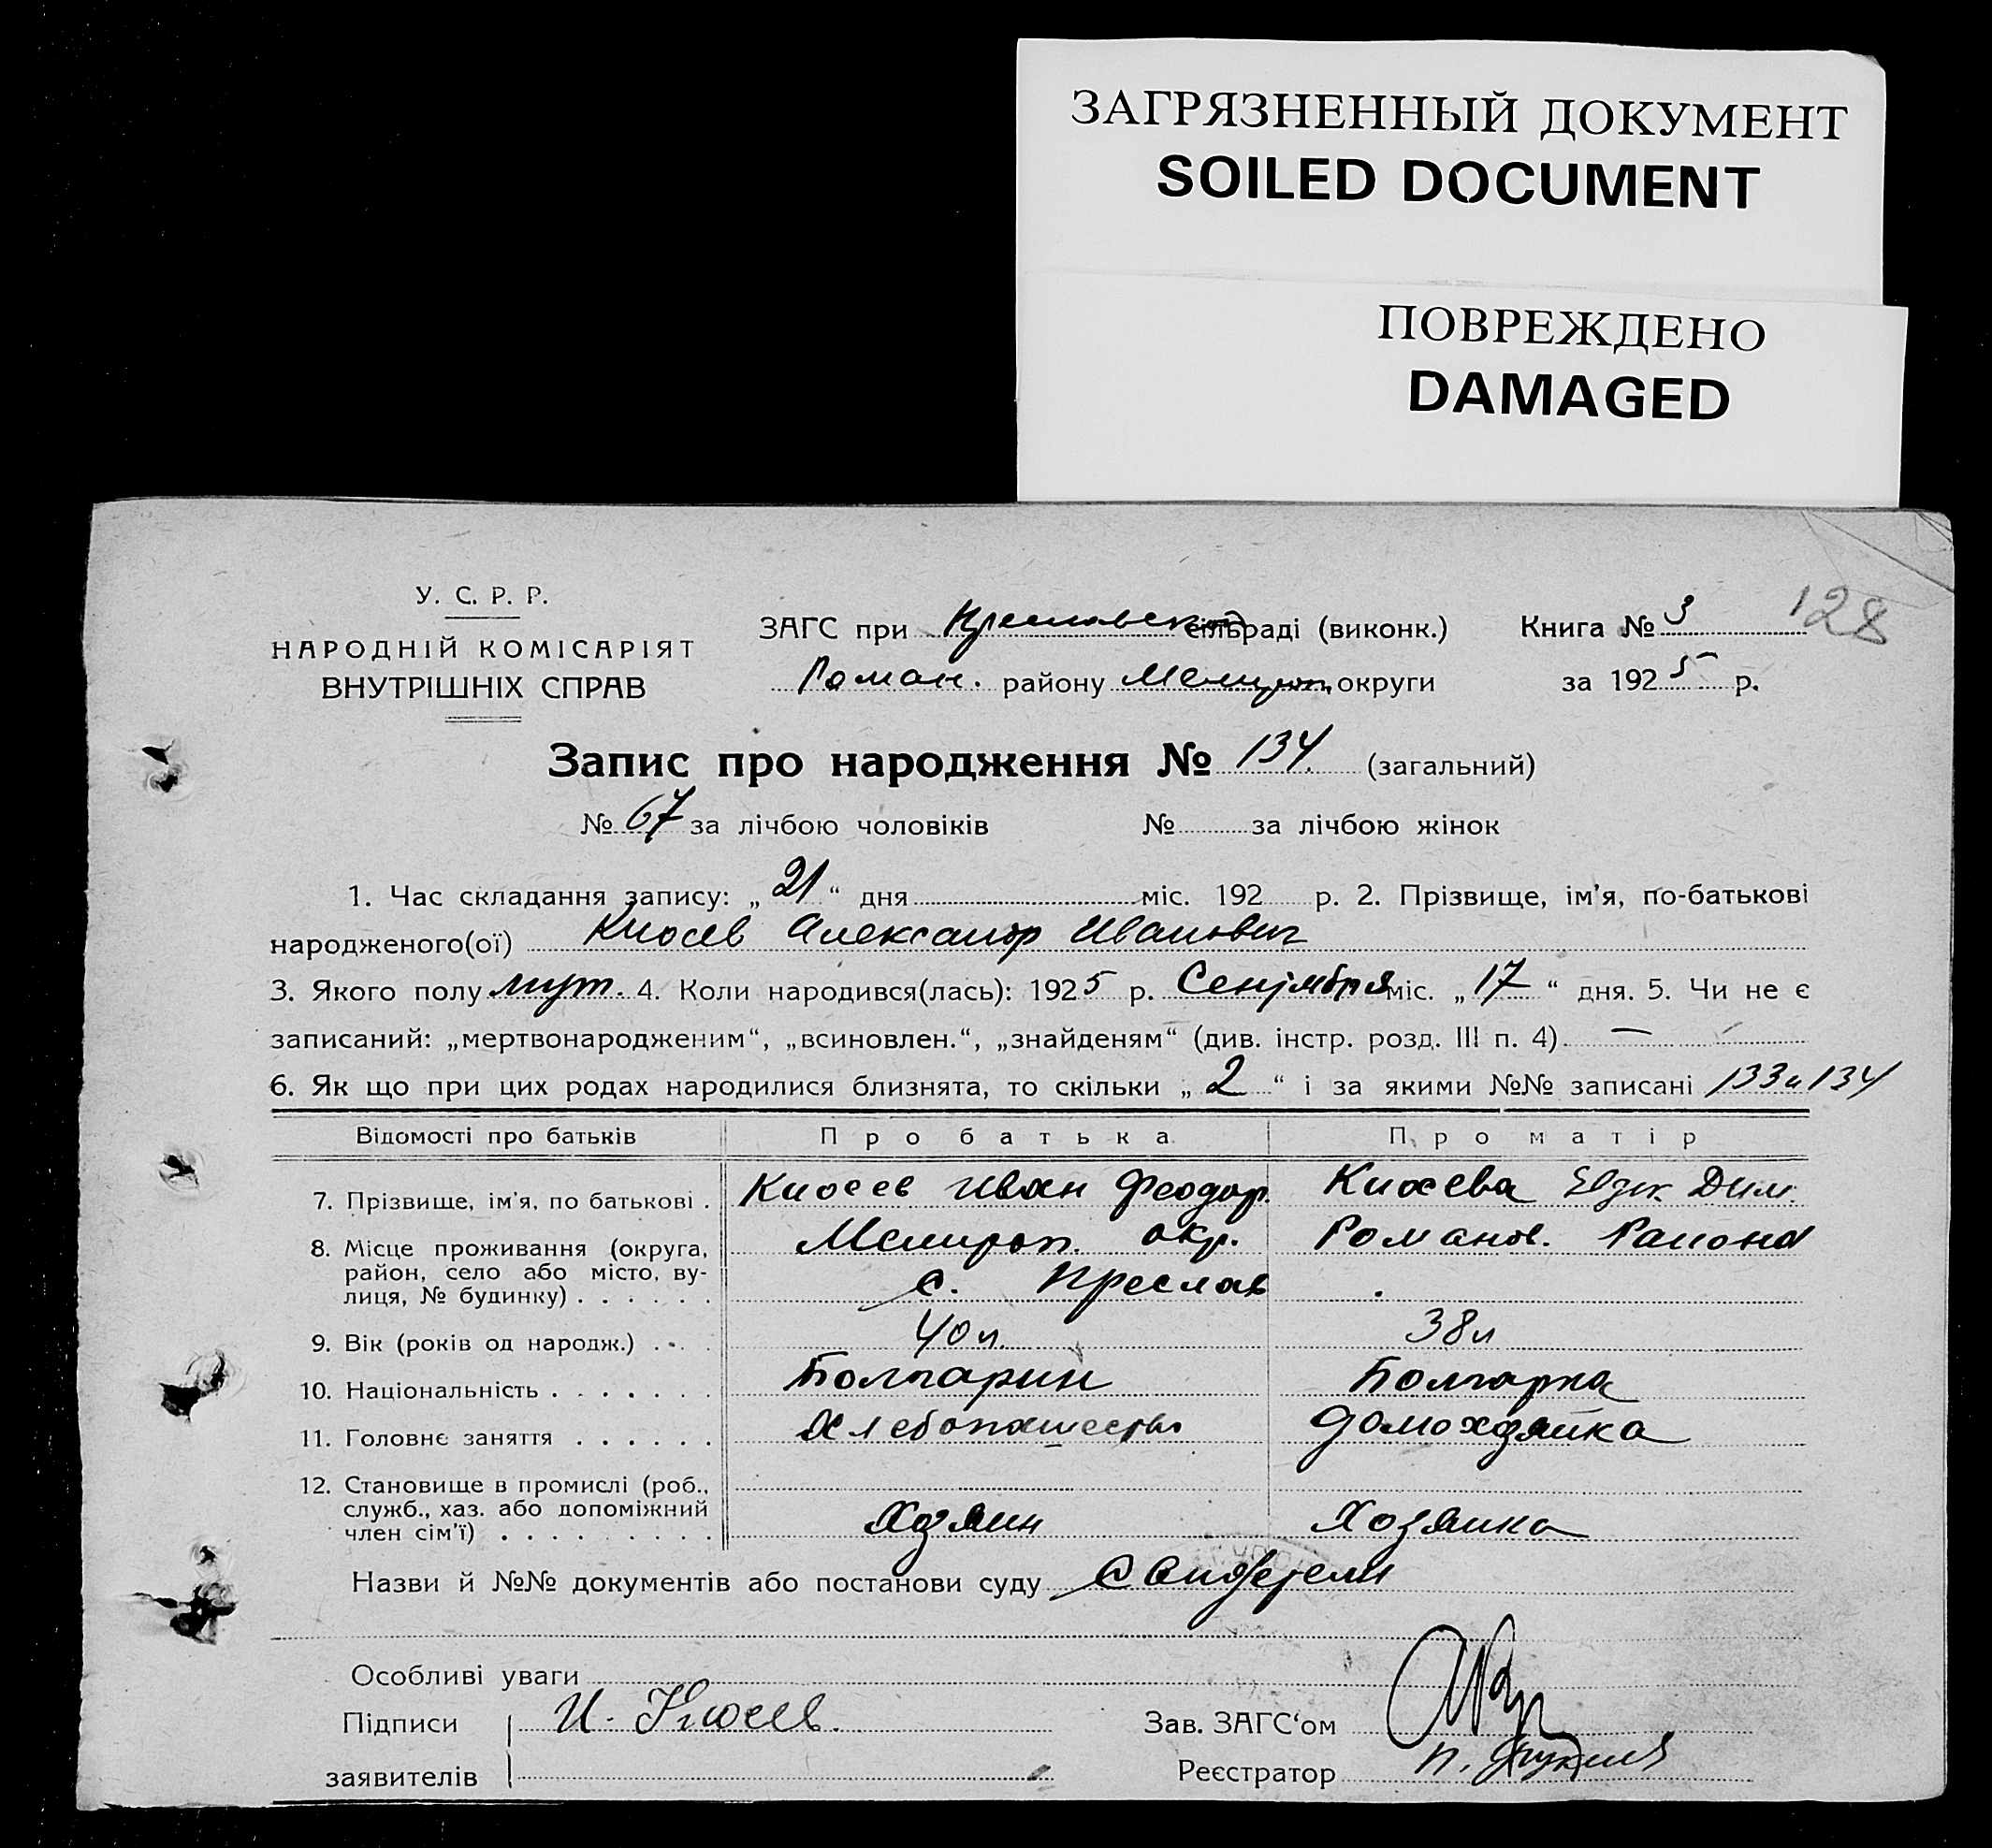 ЗАГРЯЗНЕННЫЙ ДОКУМЕНТ
SOILED DOCUMENT
ПОВРЕЖДЕНО
DAMAGED
128
У. С. Р. Р.
НАРОДНІЙ КОМІСАРІЯТ
ВНУТРІШНІХ СПРАВ
ЗАГС при Преславской сільраді (виконк.) Книга № 3
Роман. району Мелитоп. округи за 1925 р.
Запис про народження № 134. (загальний)
№ 67 за лічбою чоловіків № за лічбою жінок
1. Час складання запису: „ 21 “ дня міс. 192 р. 2. Прізвище, ім'я, по-батькові
народженого(ої) Киосев Александр Иванович
3. Якого полу муж. 4. Коли народився(лась): 1925 р. Сентября міс. „ 17 “ дня. 5. Чи не є
записаний: „мертвонародженим“, „всиновлен.“, „знайденям“ (див. інстр. розд. III п. 4). —
6. Як що при цих родах народилися близнята, то скільки „ 2 “ і за якими №№ записані 133 и 134
Відомості про батьків Про батька Про матір
7. Прізвище, ім'я, по батькові . Киосев Иван Феодор. Киосева Евдок. Дим.
8. Місце проживання (округа, Мелитоп. окр. Романов. Района
район, село або місто, ву-
лиця, № будинку) . . . . . . с. Преслав
9. Вік (років од народж.) . . . 40 л. 38 л
10. Національність . . . . . . . Болгарин Болгарка
11. Головнє заняття . . . . . . Хлебопашество домохозяйка
12. Становище в промислі (роб.,
служб., хаз. або допоміжний
член сім'ї) . . . . . . . . . Хозяин Хозяйка
Назви й №№ документів або постанови суду Свидетели
Особливі уваги
Підписи И. Киосев. Зав. ЗАГС'ом
заявителів Реєстратор П.